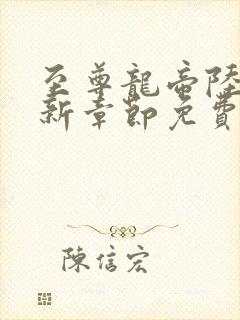 至尊龍帝陸
新章節免費
陳信宏